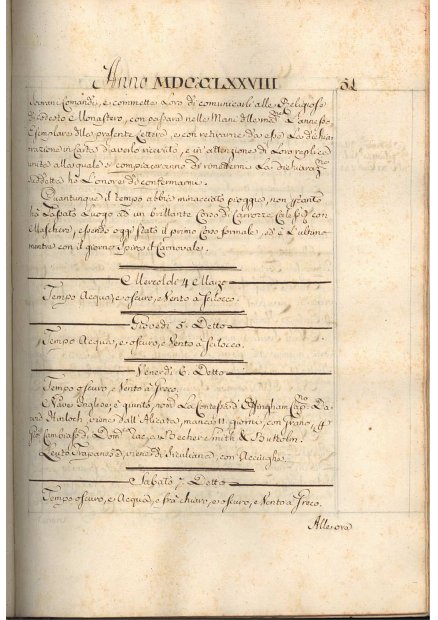 Anno MDCCLXXVIII 51
Sovrani Comandi, e commette Loro di comunicarli alle Religiose
di codesto Monastero, con passare nelle Mani delle med.e L'annesso
Esemplare della presente Lettera, e con ritirarne da esse La dichia
razione in carta d'averlo ricevuto, e in attenzione di Loro replica
unita alla quale si compiaceranno di rimettermi La dichiaraz.ne
suddetta hò L'onore di confermarmi.
Quantunque il tempo abbia minacciato pioggia, non pertanto
hà Lasciato Luogo ad un brillante Corso di Carrozze, Calessi con
Maschere, essendo oggi stato il primo Corso formale, ed è L'ultimo
mentre con il giorno spira il Carnovale.
Mercoldì 4 Marzo
Tempo Acqua, e oscuro, e Vento à Scilocco.
Giovedì 5. Detto
Tempo Acqua, e oscuro, e Vento à Scilocco.
Venerdì 6. Detto
Tempo oscuro, e Vento à Greco.
Nave Inglese, è giunto, nom.a La Contessa d'Effingham Cap.no Da
vid Kinloch, viene dall'Alicata, manca 11. giorni, con grano, p
di Dom. a Becher Smith & Buttolm.
Leuto Trapanese, viene di Siculiana, con Acciughe.
Sabato 7. Detto
Tempo oscuro, e Acqua, e frà chiaro, e oscuro, e Vento à Greco.
Alle ore